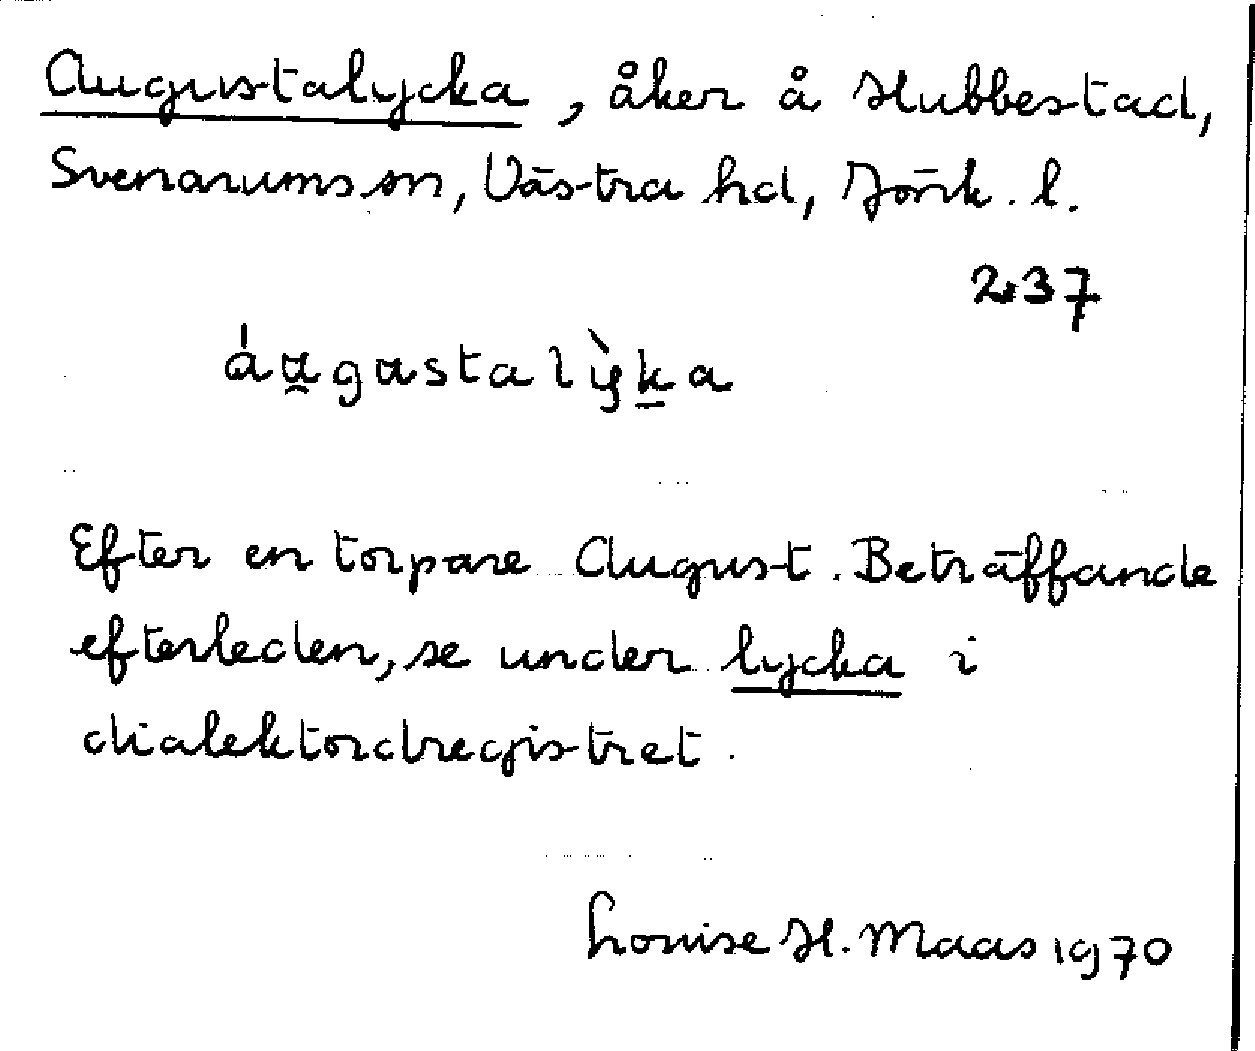 Augustalycka, åker å Hubbestad,
Svenarums sn, Västra hd, Jönk. l.
237
áu̯gastalỳka
Efter en torpare August. Beträffande
efterleden, se under lycka i
dialektordregistret.
Louise H. Maas 1970